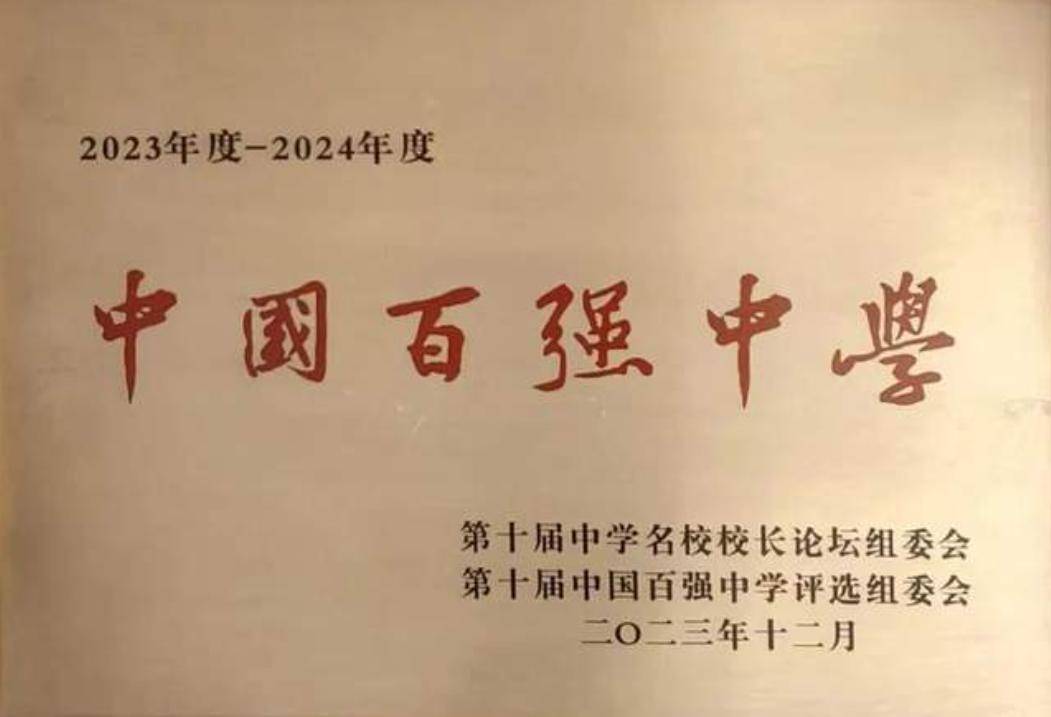 2023年度-2024年度
中國百强中學
第十届中学名校校长论坛组委会
第十届中国百强中学评选组委会
二〇二三年十二月